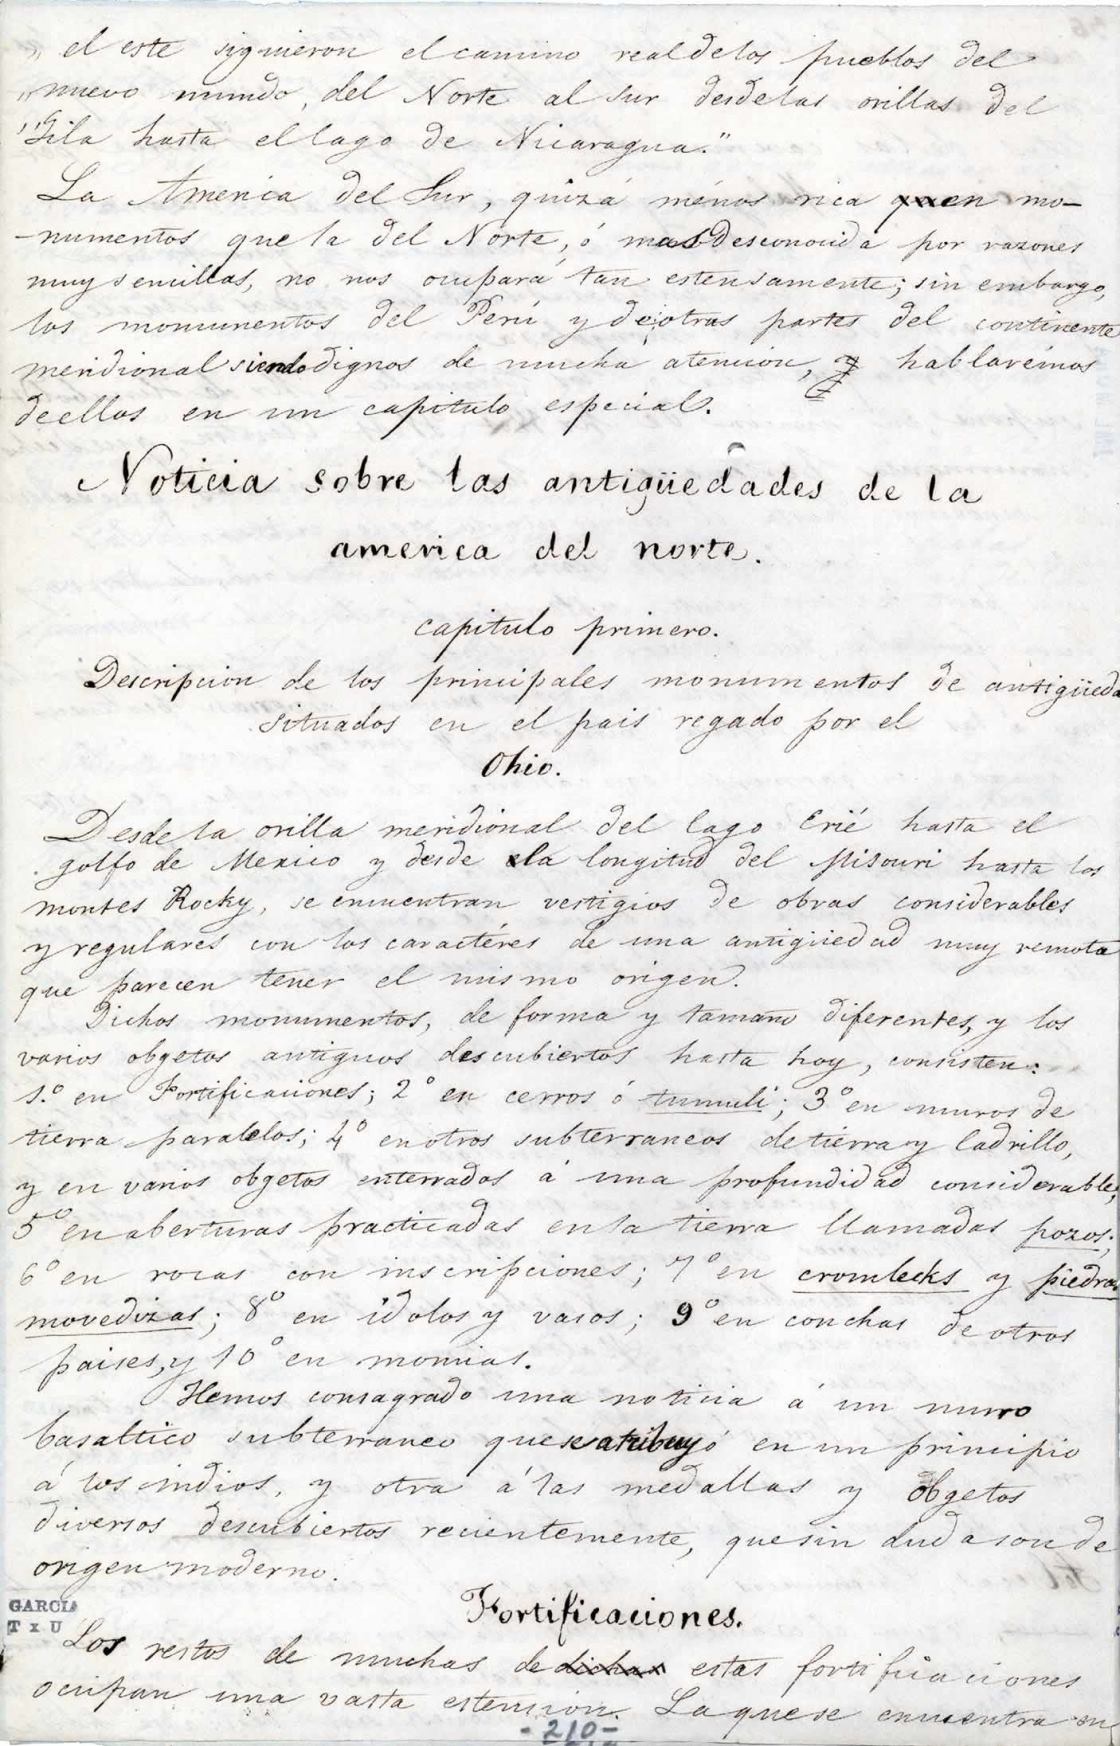 " el este siguieron el camino real de los pueblos del
" nuevo mundo, del Norte al Sur desde las orillas del
" Gila hasta el lago de Nicaragua."
La America del Sur, quizá ménos rica en mo-
-numentos que la del Norte, ó mas desconocida por razones
muy sencillas, no nos ocupará tan estensamente; sin embargo,
los monumentos del Perú y de otras partes del continente
meridional siendo dignos de mucha atencion, hablarémos
de ellos en un capitulo especial.
Noticia sobre las antigüedades de la
america del norte.
capitulo primero.
Descripcion de los principales monumentos de antigüeda
situados en el pais regado por el
Ohio.
Desde la orilla meridional del lago Erié hasta el
golfo de Mexico y desde la longitud del Misouri hasta los
montes Rocky, se encuentran vestigios de obras considerables
y regulares con los caractéres de una antigüedad muy remota
que parecen tener el mismo origen.
Dichos monumentos, de forma y tamaño diferentes, y los
varios obgetos antiguos descubiertos hasta hoy, consisten:
1.º en Fortificaciones; 2º en cerros ó tumuli; 3º en muros de
tierra paralelos; 4º en otros subterraneos de tierra y ladrillo,
y en varios obgetos enterrados á una profundidad considerable;
5º en aberturas practicadas en la tierra llamadas pozos;
6º en rocas con inscripciones; 7º en cromlecks y piedras
movedizas; 8º en idolos y vasos; 9º en conchas de otros
paises, y 10º en momias.
Hemos consagrado una noticia á un muro
basaltico subterraneo que se atribuyó en un principio
á los indios, y otra á las medallas y obgetos
diversos descubiertos recientemente, que sin duda son de
origen moderno.
Fortificaciones.
GARCIA
T x U
Los restos de muchas de dichas estas fortificaciones
ocupan una vasta estension. La que se encuentra en
-210-